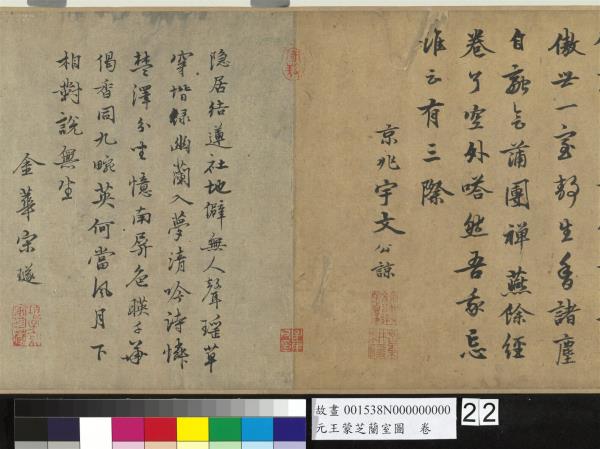 傲世一室静生香諸塵
自融蒲團禅燕餘經
卷了空外嗒然吾我忘
誰云有三際
京兆宇文公諒
隐居结蓮社地僻無人聲瑶草
穿堦緑幽蘭入夢清吟詩憐
楚澤憶南色暎千
偈香同九畹英何當風月下
相對說無生
金華宋璲
故畫 001538N000000000
元王蒙芝蘭室圖 卷
22